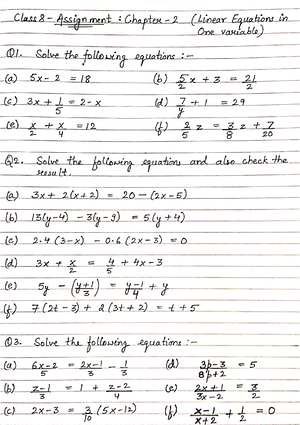 Class 8 - Assignment : Chapter - 2 (Linear Equations in
One variable)
Q1. Solve the following equations :-
(a) 5x - 2 = 18 (b) 5/2 x + 3 = 21/2
(c) 3x + 1/5 = 2 - x (d) 7/y + 1 = 29
(e) x/2 + x/4 = 12 (f) 2/5 z = 3/8 z + 7/20
Q2. Solve the following equations and also check the
result.
(a) 3x + 2(x + 2) = 20 - (2x - 5)
(b) 13(y - 4) - 3(y - 9) = 5(y + 4)
(c) 2.4(3 - x) - 0.6(2x - 3) = 0
(d) 3x + x/2 = 4/5 + 4x - 3
(e) 5y - (y+1/3) = y-1/4 + y
(f) 7(2t - 3) + 2(3t + 2) = t + 5
Q3. Solve the following equations :-
(a) 6x-2/5 = 2x-1/3 - 1/3 (d) 3p-3/8p+2 = 5
(b) z-1/3 = 1 + z-2/4 (e) 2x+1/3x-2 = 3/2
(c) 2x - 3 = 3/10 (5x - 12) (f) x-1/x+2 + 1/2 = 0